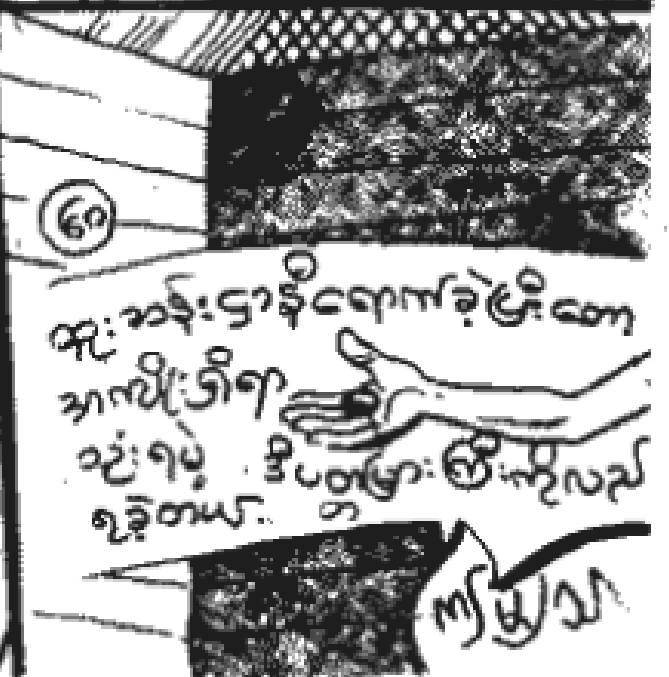 ၆၀
ထူးဆန်း ရောက်ခဲ့ပြီးတော့
အကျိုးရှိရာ
သုံးရမဲ့ ဒီပတ္တမြားကြီးကိုလည်
ရခဲ့တယ်..